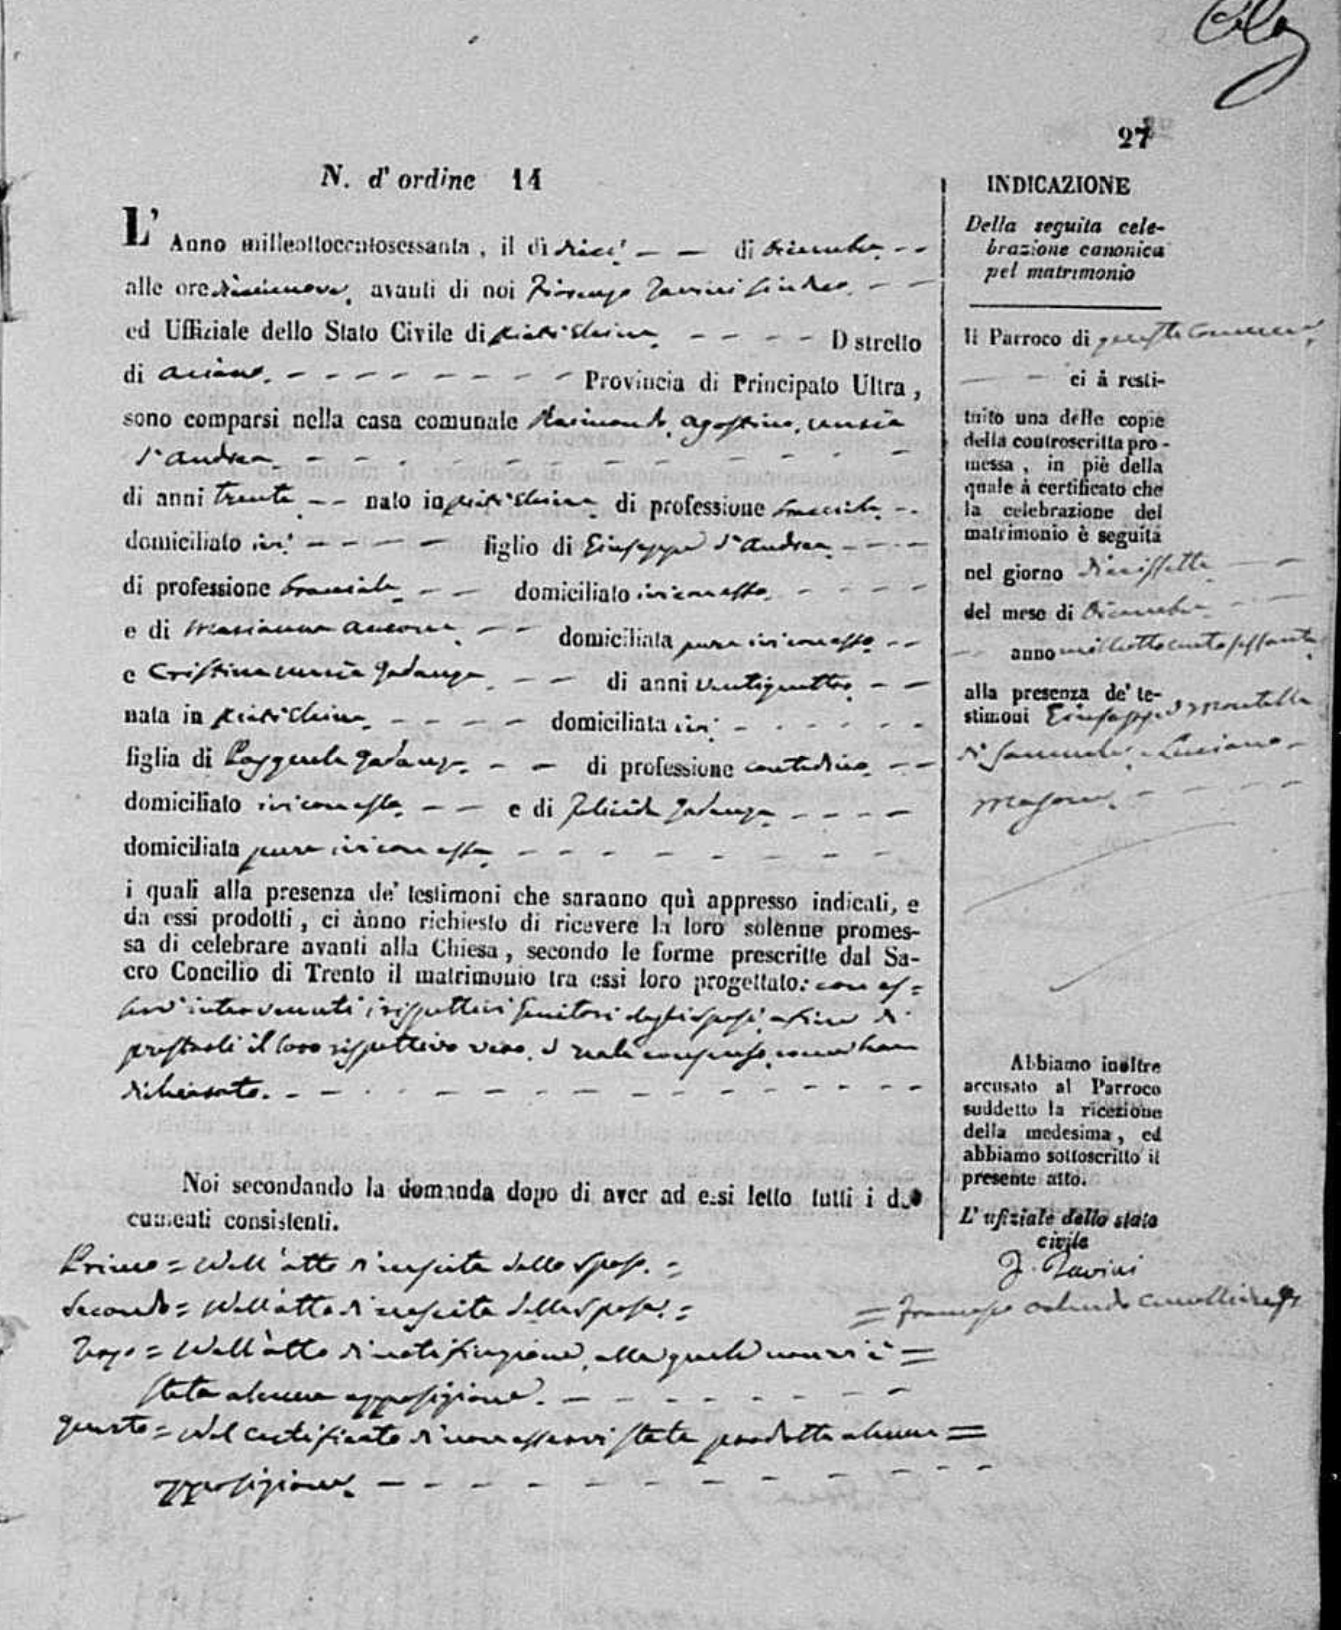 27
N. d' ordine 14
L' Anno milleottocentosessanta, il dì dieci di Dicembre
alle ore diecinove, avanti di noi Fiorenzo Iavini Sindaco
ed Uffiziale dello Stato Civile di Distretto
di Ariano Provincia di Principato Ultra,
sono comparsi nella casa comunale Raimondo, Agostino, Nunzio
d'Andrea
di anni trenta nato in di professione bracciale
domiciliato ivi figlio di Giuseppe d'Andrea
di professione bracciale domiciliato ivi con esso
e di Marianna domiciliata pure ivi con esso
e Cristina Nunzia di anni ventiquattro
nata in domiciliata ivi
figlia di Pasquale di professione contadino
domiciliato ivi con essa e di Felicia
domiciliata pure ivi con essa
i quali alla presenza de' testimoni che saranno quì appresso indicati, e
da essi prodotti, ci ànno richiesto di ricevere la loro solenne promes-
sa di celebrare avanti alla Chiesa, secondo le forme prescritte dal Sa-
cro Concilio di Trento il matrimonio tra essi loro progettato: con es=
servi intervenuti i rispettivi genitori degli sposi, a fine di
prestarli il loro rispettivo vivo, e reale consenso, come han
dichiarato.
Noi secondando la domanda dopo di aver ad essi letto tutti i do
cumenti consistenti.
Primo = Nell'atto di nascita dello sposo. =
Secondo = Nell'atto di nascita della sposa. =
Terzo = Nell'atto di notificazione, alla quale non vi è =
stata alcuna opposizione.
Quarto = Nel certificato di non esservi stata prodotta alcuna =
opposizione.
INDICAZIONE
Della seguita cele-
brazione canonica
pel matrimonio
Il Parroco di questo Comune
ci à resti-
tuito una delle copie
della controscritta pro-
messa, in piè della
quale à certificato che
la celebrazione del
matrimonio è seguita
nel giorno diecissette
del mese di Dicembre
anno milleottocentosessanta
alla presenza de' te-
stimoni Giuseppe
di Samuele, e Luciano
Abbiamo inoltre
accusato al Parroco
suddetto la ricezione
della medesima, ed
abbiamo sottoscritto il
presente atto.
L' ufiziale dello stato
civile
F. Iavini
= Francesco Orlando Cancelliere